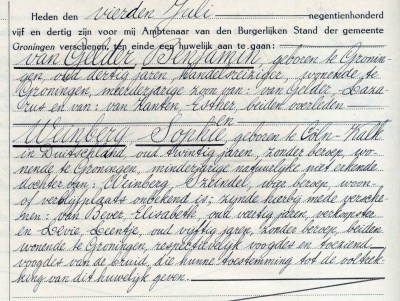 Heden den vierden Juli negentienhonderd
vijf en dertig zijn voor mij Ambtenaar van den Burgerlijken Stand der gemeente
Groningen verschenen, ten einde een huwelijk aan te gaan:
van Gelder, Benjamin, geboren te Gronin-
gen, oud dertig jaren, handelsreiziger, wonende te
Groningen, meerderjarige zoon van: van Gelder, Laza-
rus en van: van Zanten, Esther, beiden overleden
en
Weinberg, Sophie, geboren te Cöln-Kalk
in Duitschland, oud twintig jaren, zonder beroep, wo-
nende te Groningen, minderjarige natuurlijke niet erkende
dochter van: Weinberg, Freindel, wier beroep, woon-
of verblijfplaats onbekend is; zijnde hierbij mede versche-
nen: van Bever, Elisabeth, oud veertig jaren, verkoopster
en Levie, Leentje, oud vijftig jaren, zonder beroep, beiden
wonende te Groningen, respectievelijk voogdes en toeziend
voogdes van de bruid, die hunne toestemming tot de voltrek-
king van dit huwelijk geven.